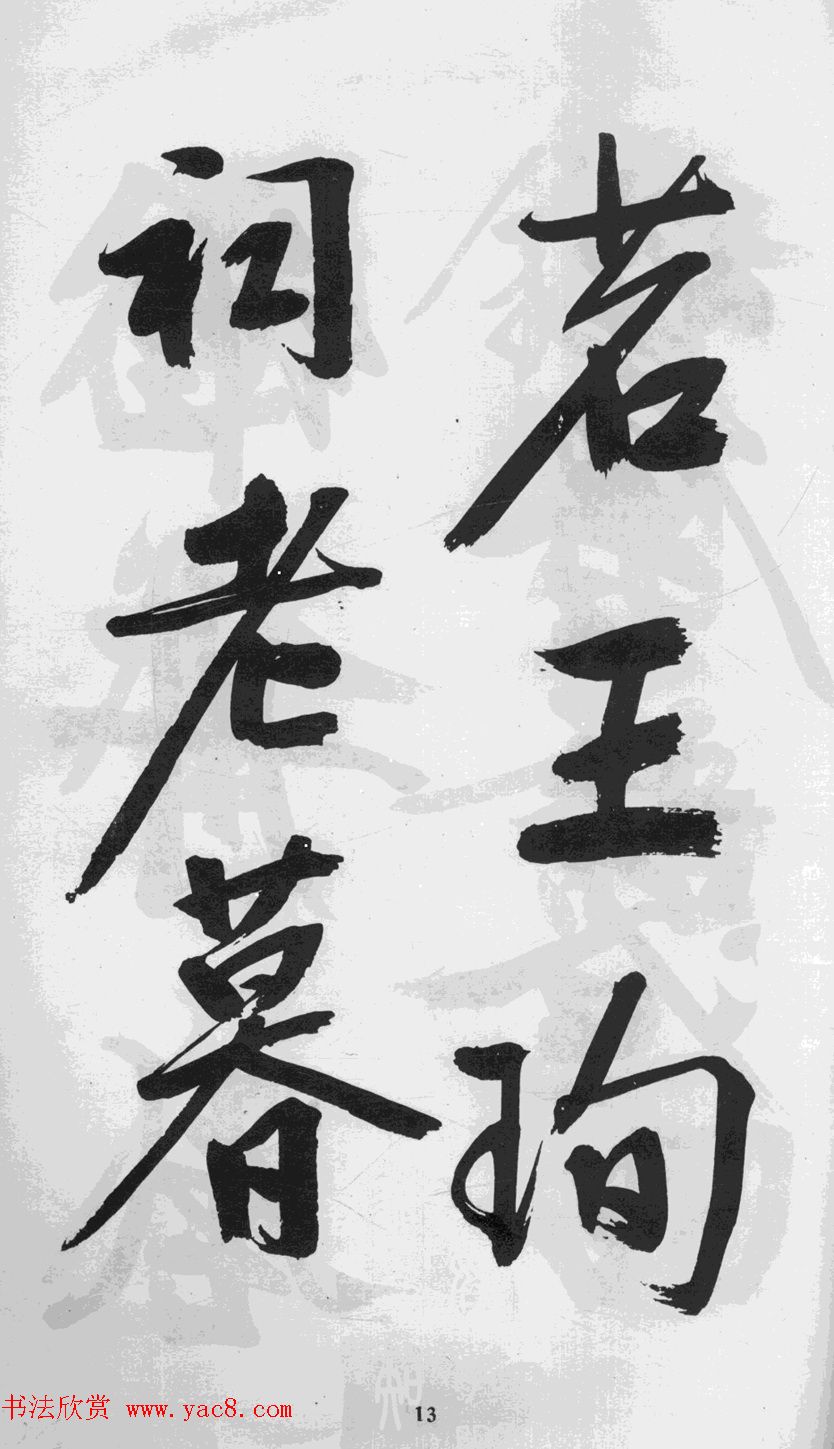 若王珣
祠老暮
13
书法欣赏 www.yac8.com